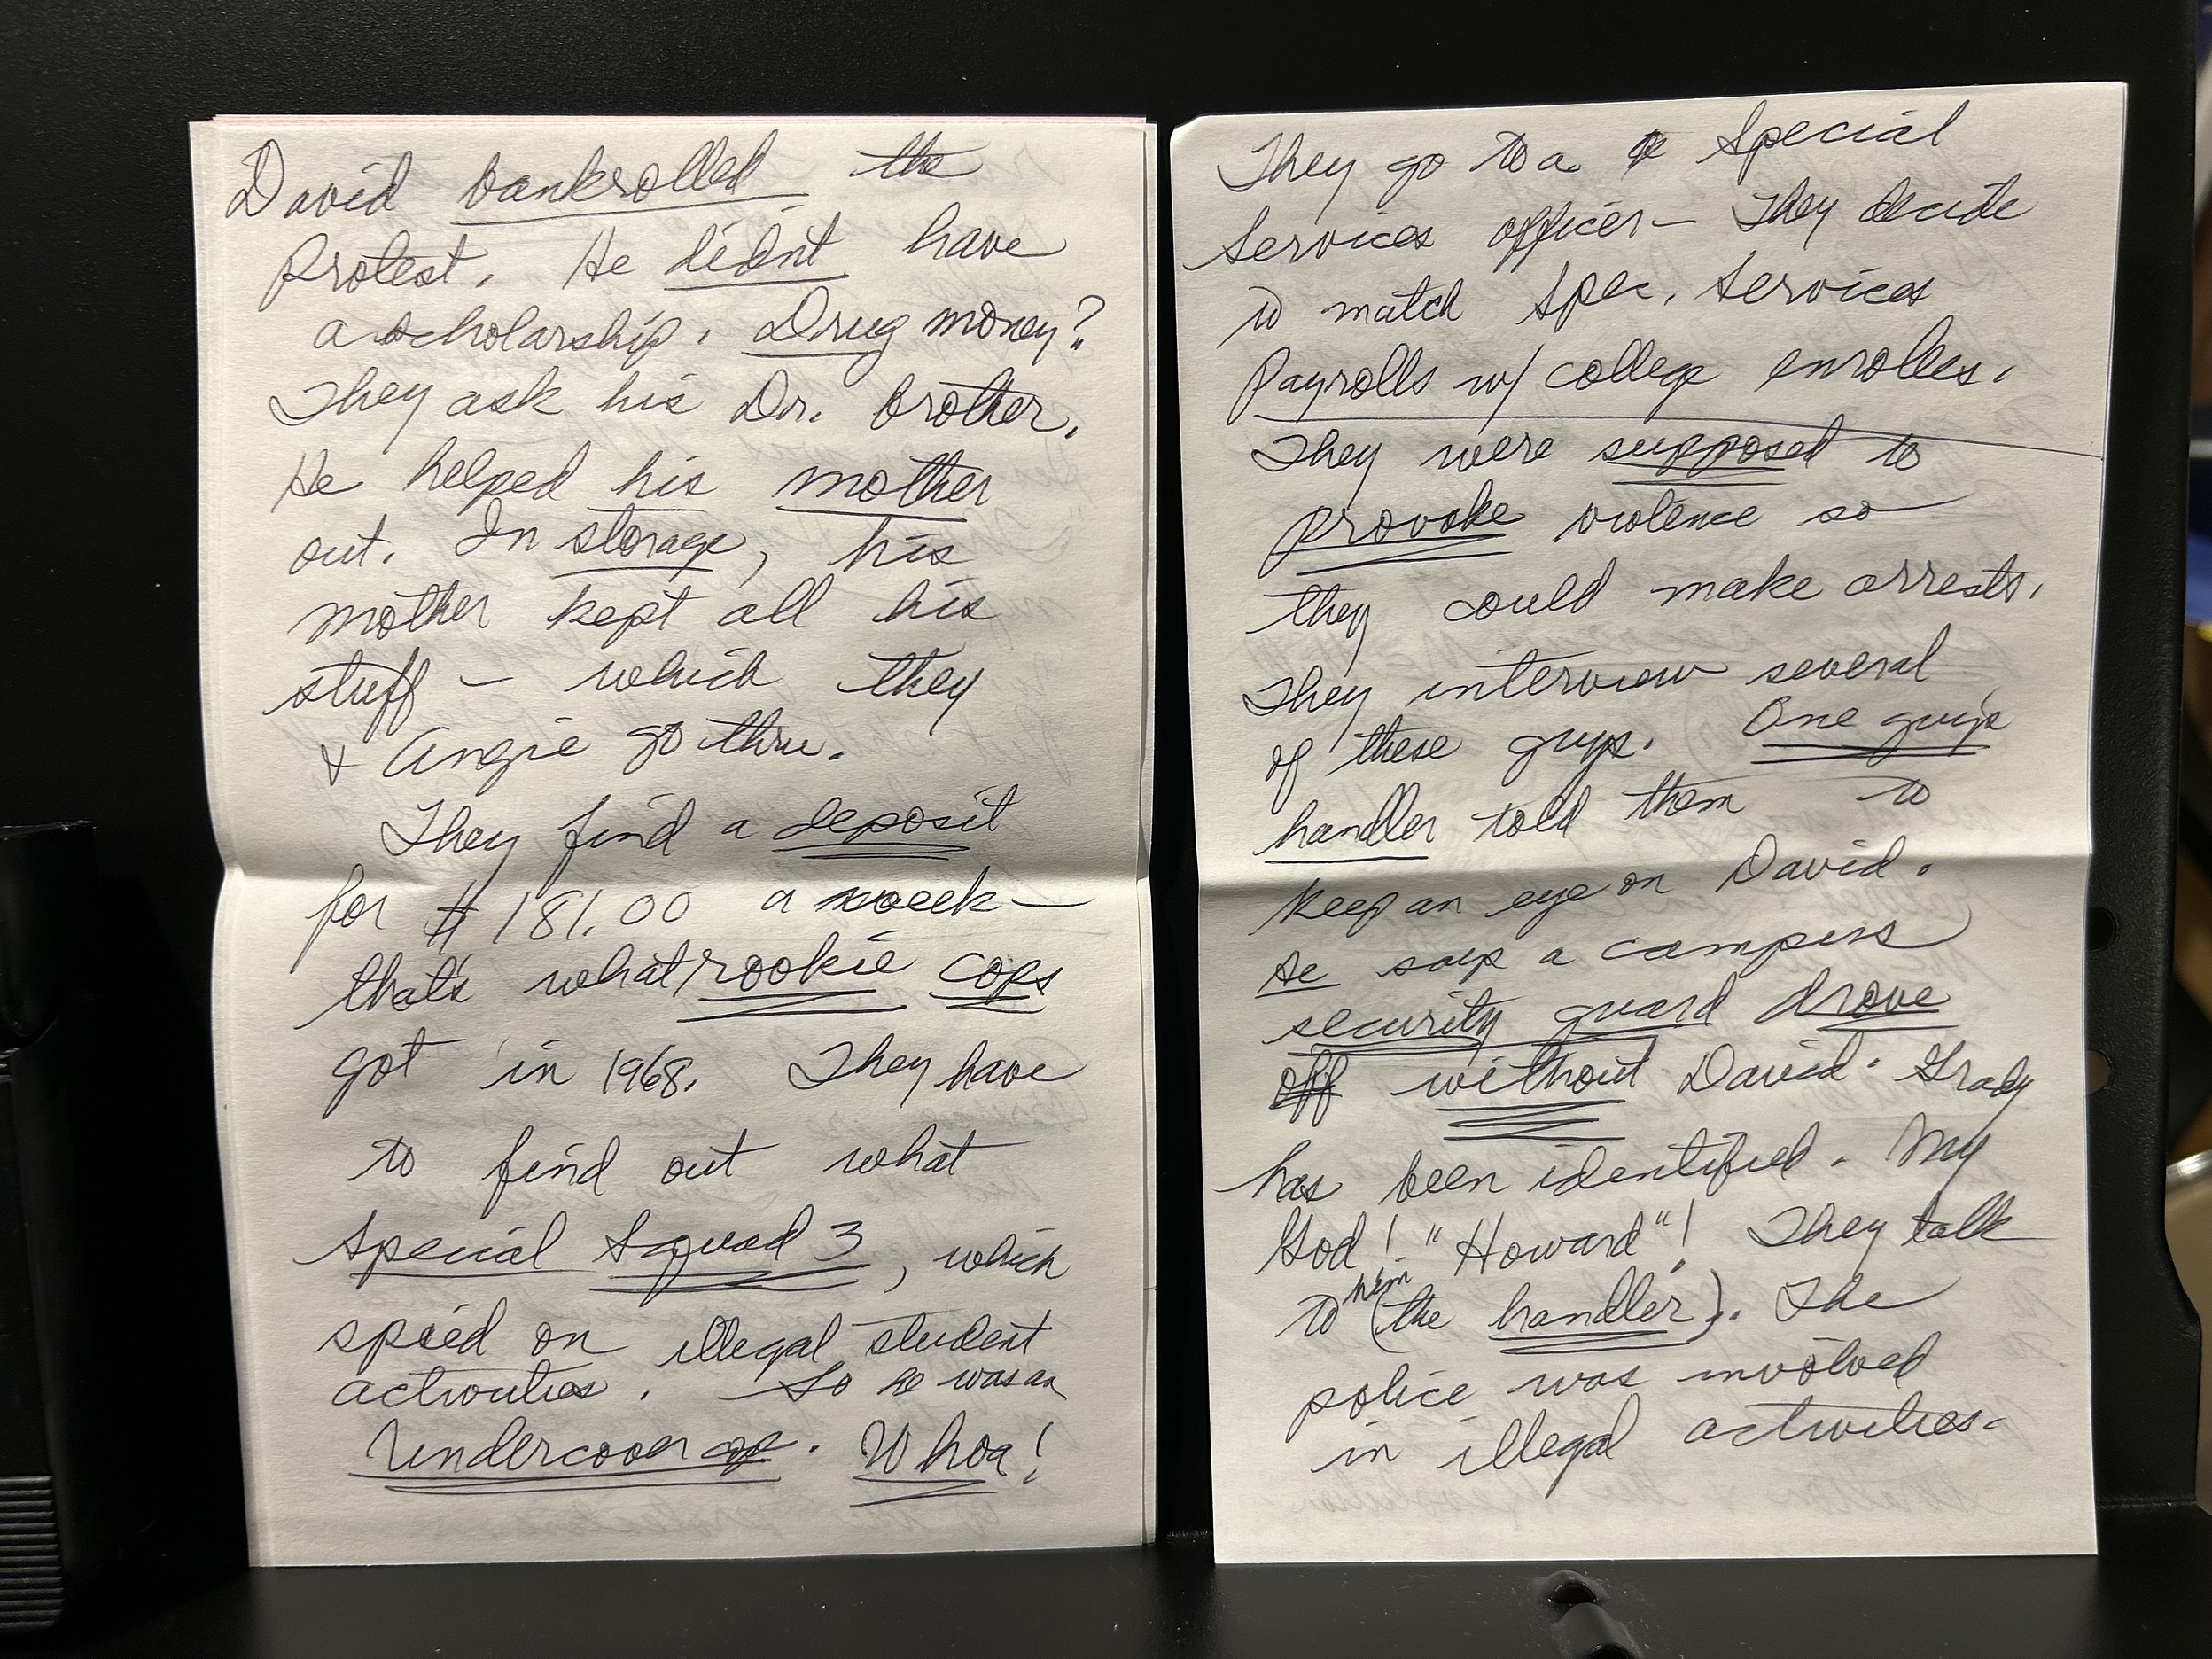 David bankrolled the
Protest. He didn't have
a scholarship. Drug money?
They ask his Dr. brother.
He helped his mother
out. In storage, his
mother kept all his
stuff – which they
& Angie go thru.
They find a deposit
for $181.00 a week –
that's what rookie cops
got in 1968. They have
to find out what
Special Squad 3, which
spied on illegal student
activities. So he was an
Undercover cop. Whoa!
They go to a Special
Services officer – They decide
to match Spec. Services
Payrolls w/ college enrolles.
They were supposed to
provoke violence so
they could make arrests.
They interview several
of these guys. One guy's
handler told them to
keep an eye on David.
He says a campus
security guard drove
off without David. Grady
has been identified. My
God! "Howard"! They talk
to him (the handler). The
police was involved
in illegal activities.